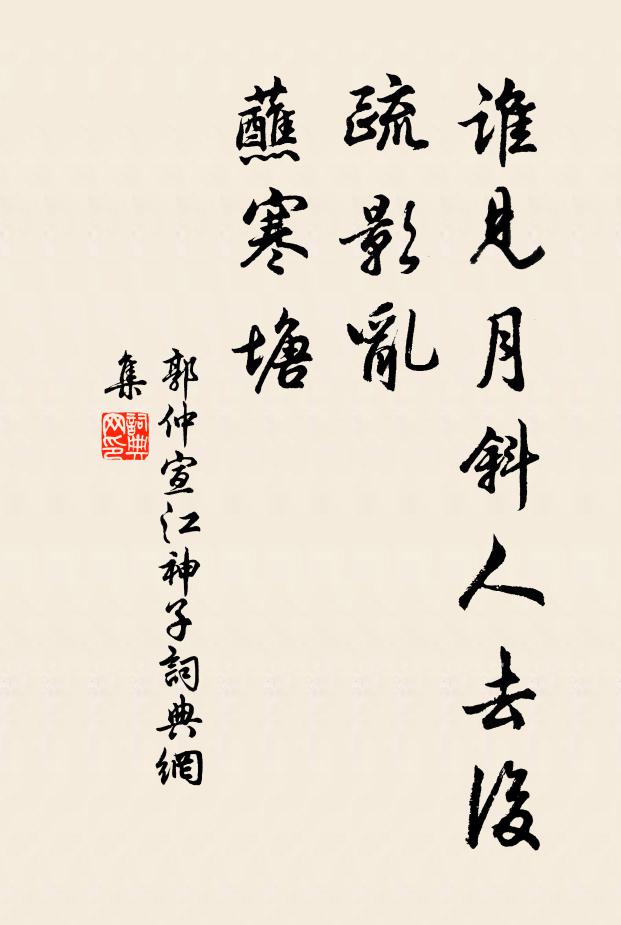 誰見月斜人去後
疏影亂
蘸寒塘
郭仲宣江神子詞典網
集
詞典網印